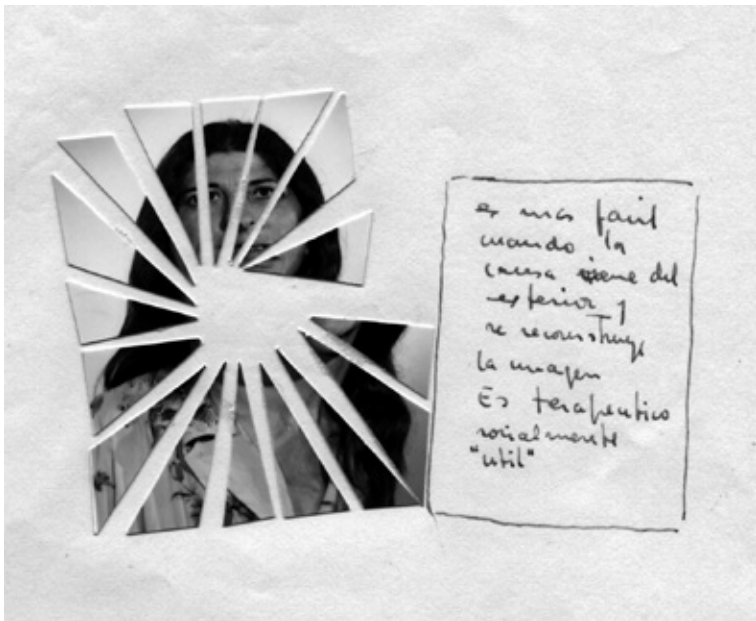 es mas facil
cuando la
causa viene del
exterior y
se reconstruye
la imagen
Es terapeutico
socialmente
"util"